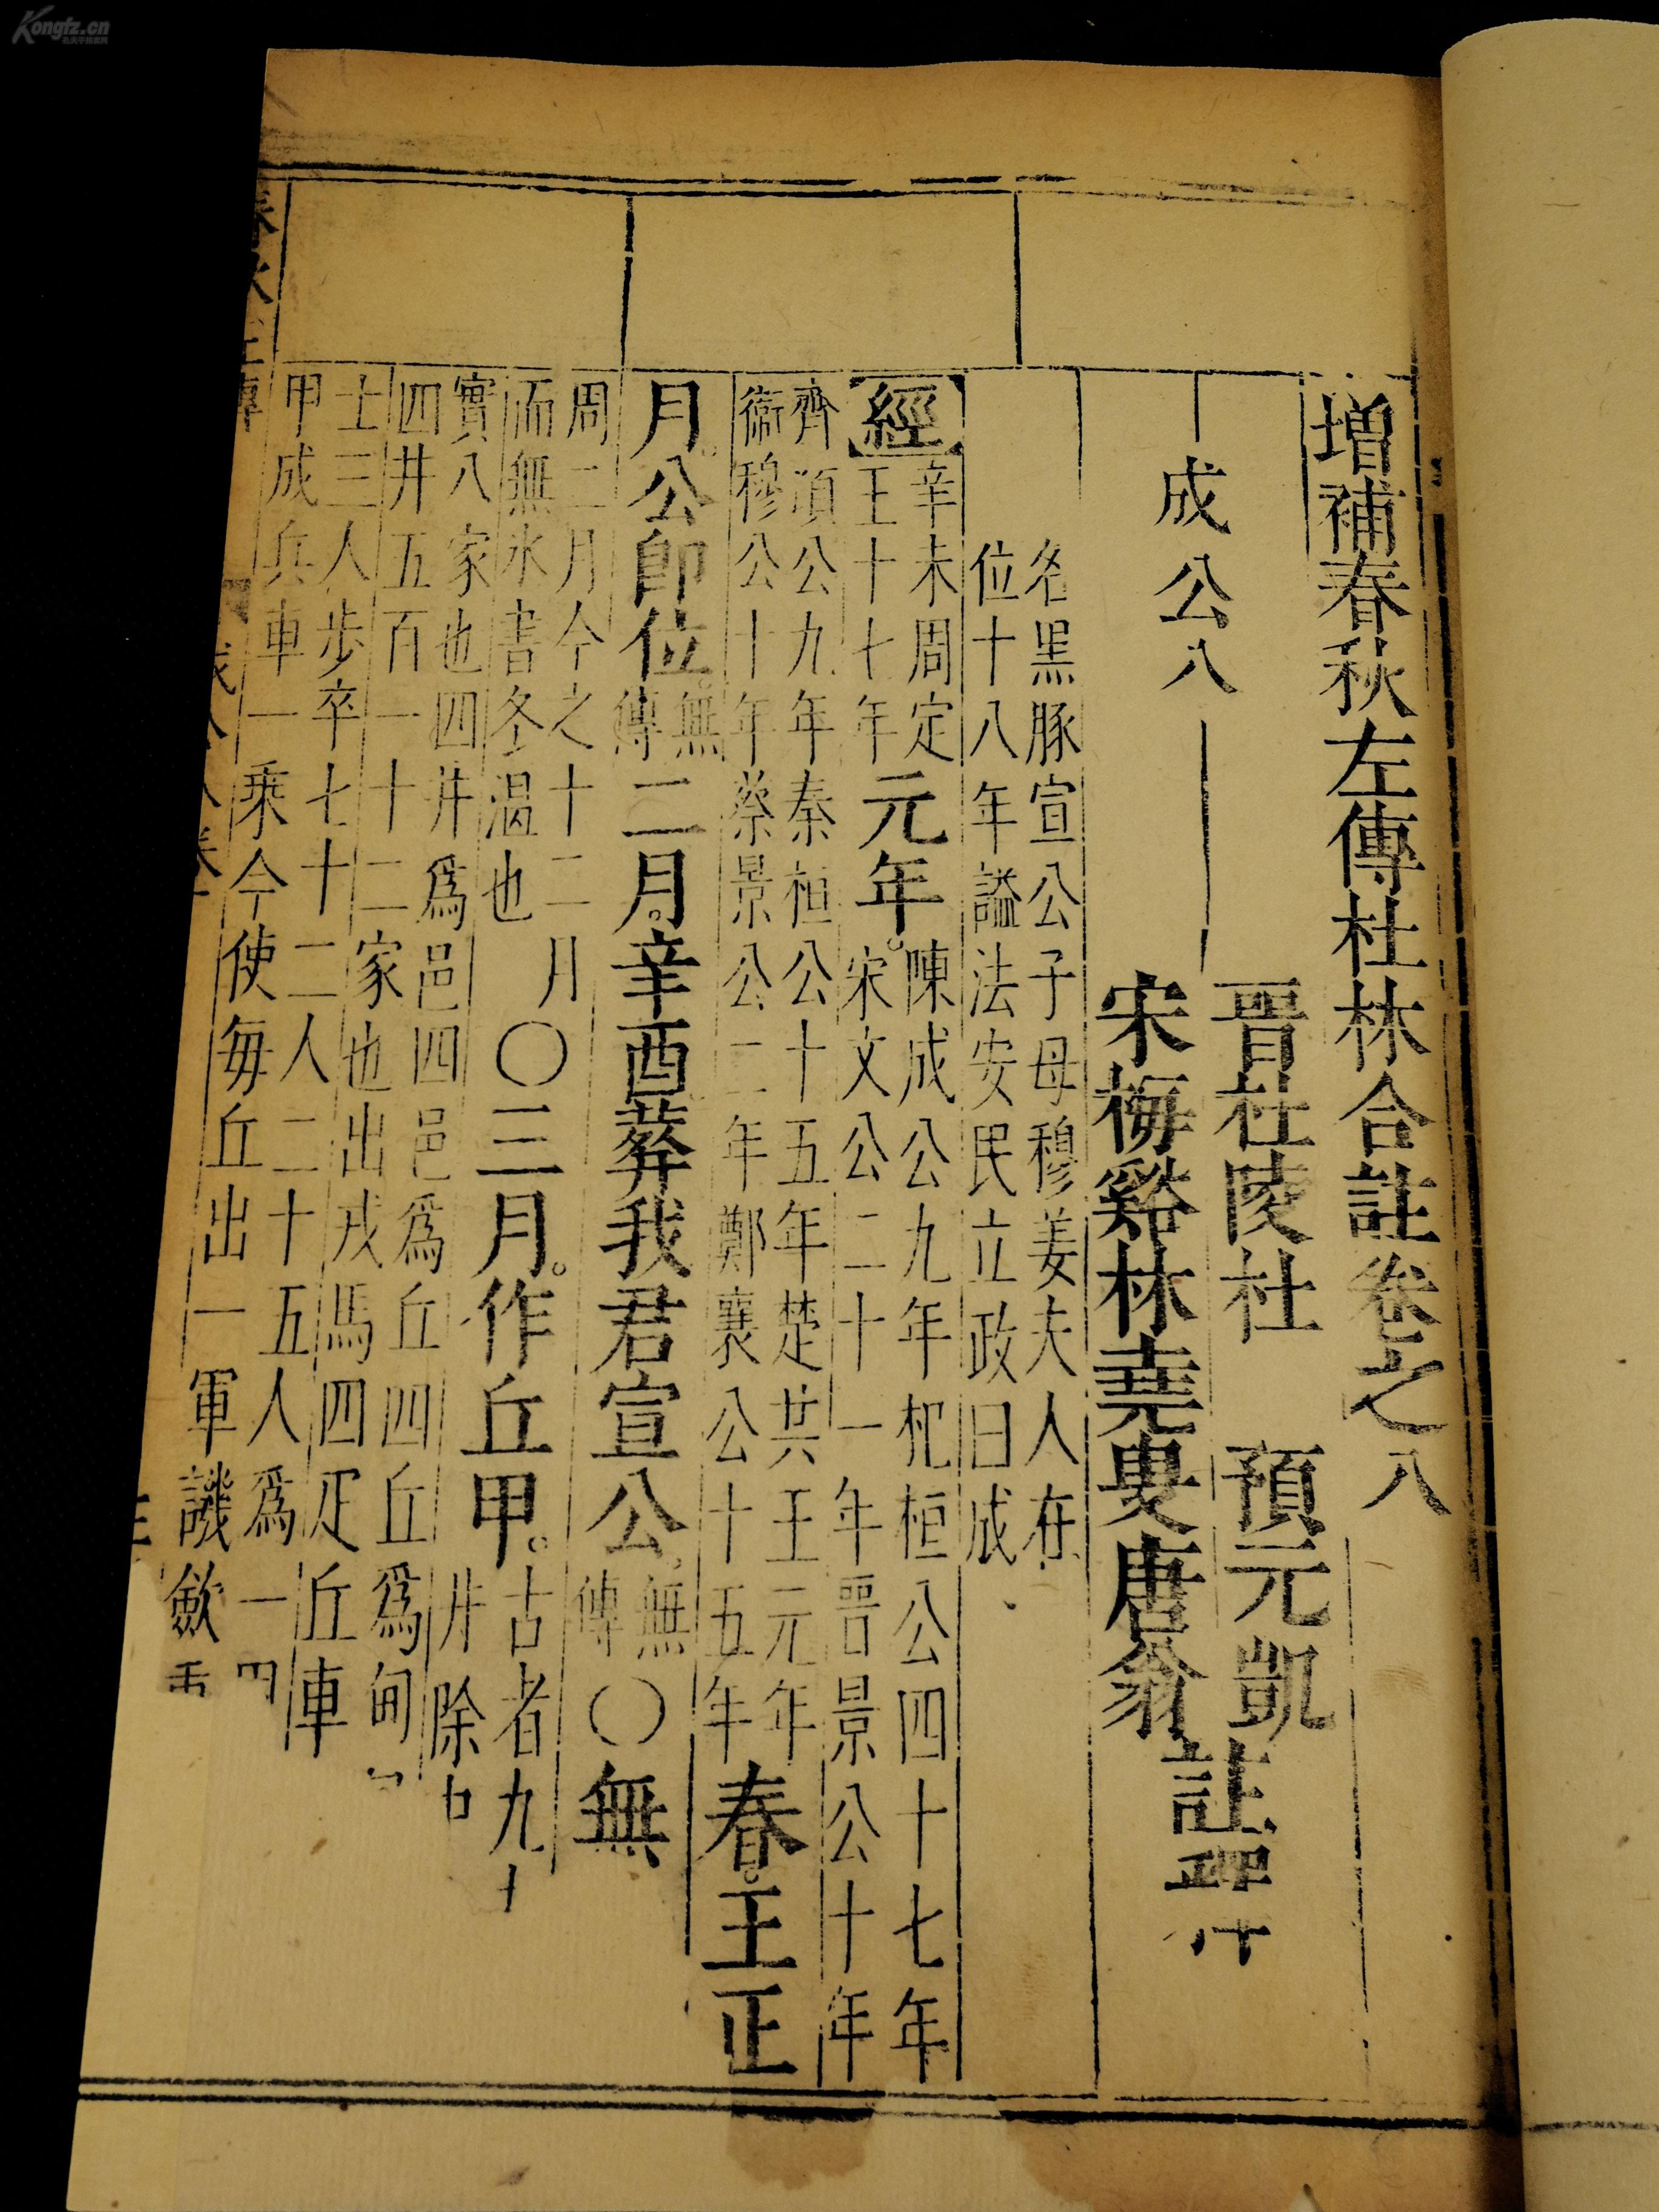 增補春秋左傳杜林合註卷之八
晉杜陵杜 預元凱
宋梅谿林堯叟唐翁
註釋
成公八
名黑豚宣公子母穆姜夫人在
位十八年謚法安民立政曰成
經
辛未周定
王十七年
元年
陳成公九年杞桓公四十七年
宋文公二十一年晉景公十年
齊頃公九年秦桓公十五年楚共王元年
衞穆公十年蔡景公二年鄭襄公十五年
春王正
月公卽位
無
傳
二月辛酉葬我君宣公
無
傳
○無
周二月今之十二月
而無冰書冬溫也
○三月作丘甲
古者九
井除
實八家也四井爲邑四邑爲丘四丘爲甸
四井五百一十二家也出戎馬四疋丘車
士三人步卒七十二人二十五人爲一
甲成兵車一乘今使每丘出一軍譏斂
Kongfz.cn
孔夫子旧书网